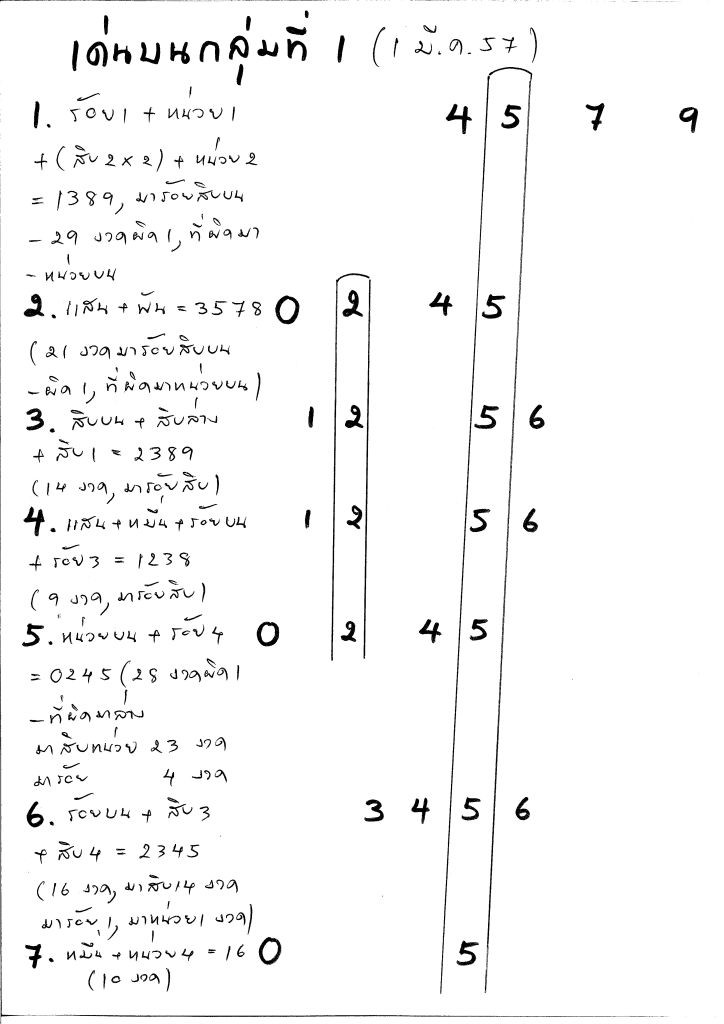 เด่นบนกลุ่มที่ 1 (1 มี.ค.57)
1. ร้อย1 + หน่วย1 4 5 7 9
+ (สิบ2 x 2) + หน่วย2
= 1389, มาร้อยสิบบน
- 29 งวดผิด1, ที่ผิดมา
- หน่วยบน
2. แสน + พัน = 3578 0 2 4 5
(21 งวดมาร้อยสิบบน
- ผิด1, ที่ผิดมาหน่วยบน)
3. สิบบน + สิบล่าง 1 2 5 6
+ สิบ1 = 2389
(14 งวด, มาร้อยสิบ)
4. แสน+หมื่น+ร้อยบน 1 2 5 6
+ ร้อย3 = 1238
(9 งวด, มาร้อยสิบ)
5. หน่วยบน + ร้อย4 0 2 4 5
= 0245 (28 งวดผิด1
- ที่ผิดมาล่าง
มาสิบหน่วย 23 งวด
มาร้อย 4 งวด
6. ร้อยบน + สิบ3 3 4 5 6
+ สิบ4 = 2345
(16 งวด, มาสิบ14 งวด
มาร้อย1, มาหน่วย1 งวด)
7. หมื่น + หน่วย4 = 16 0 5
(10 งวด)